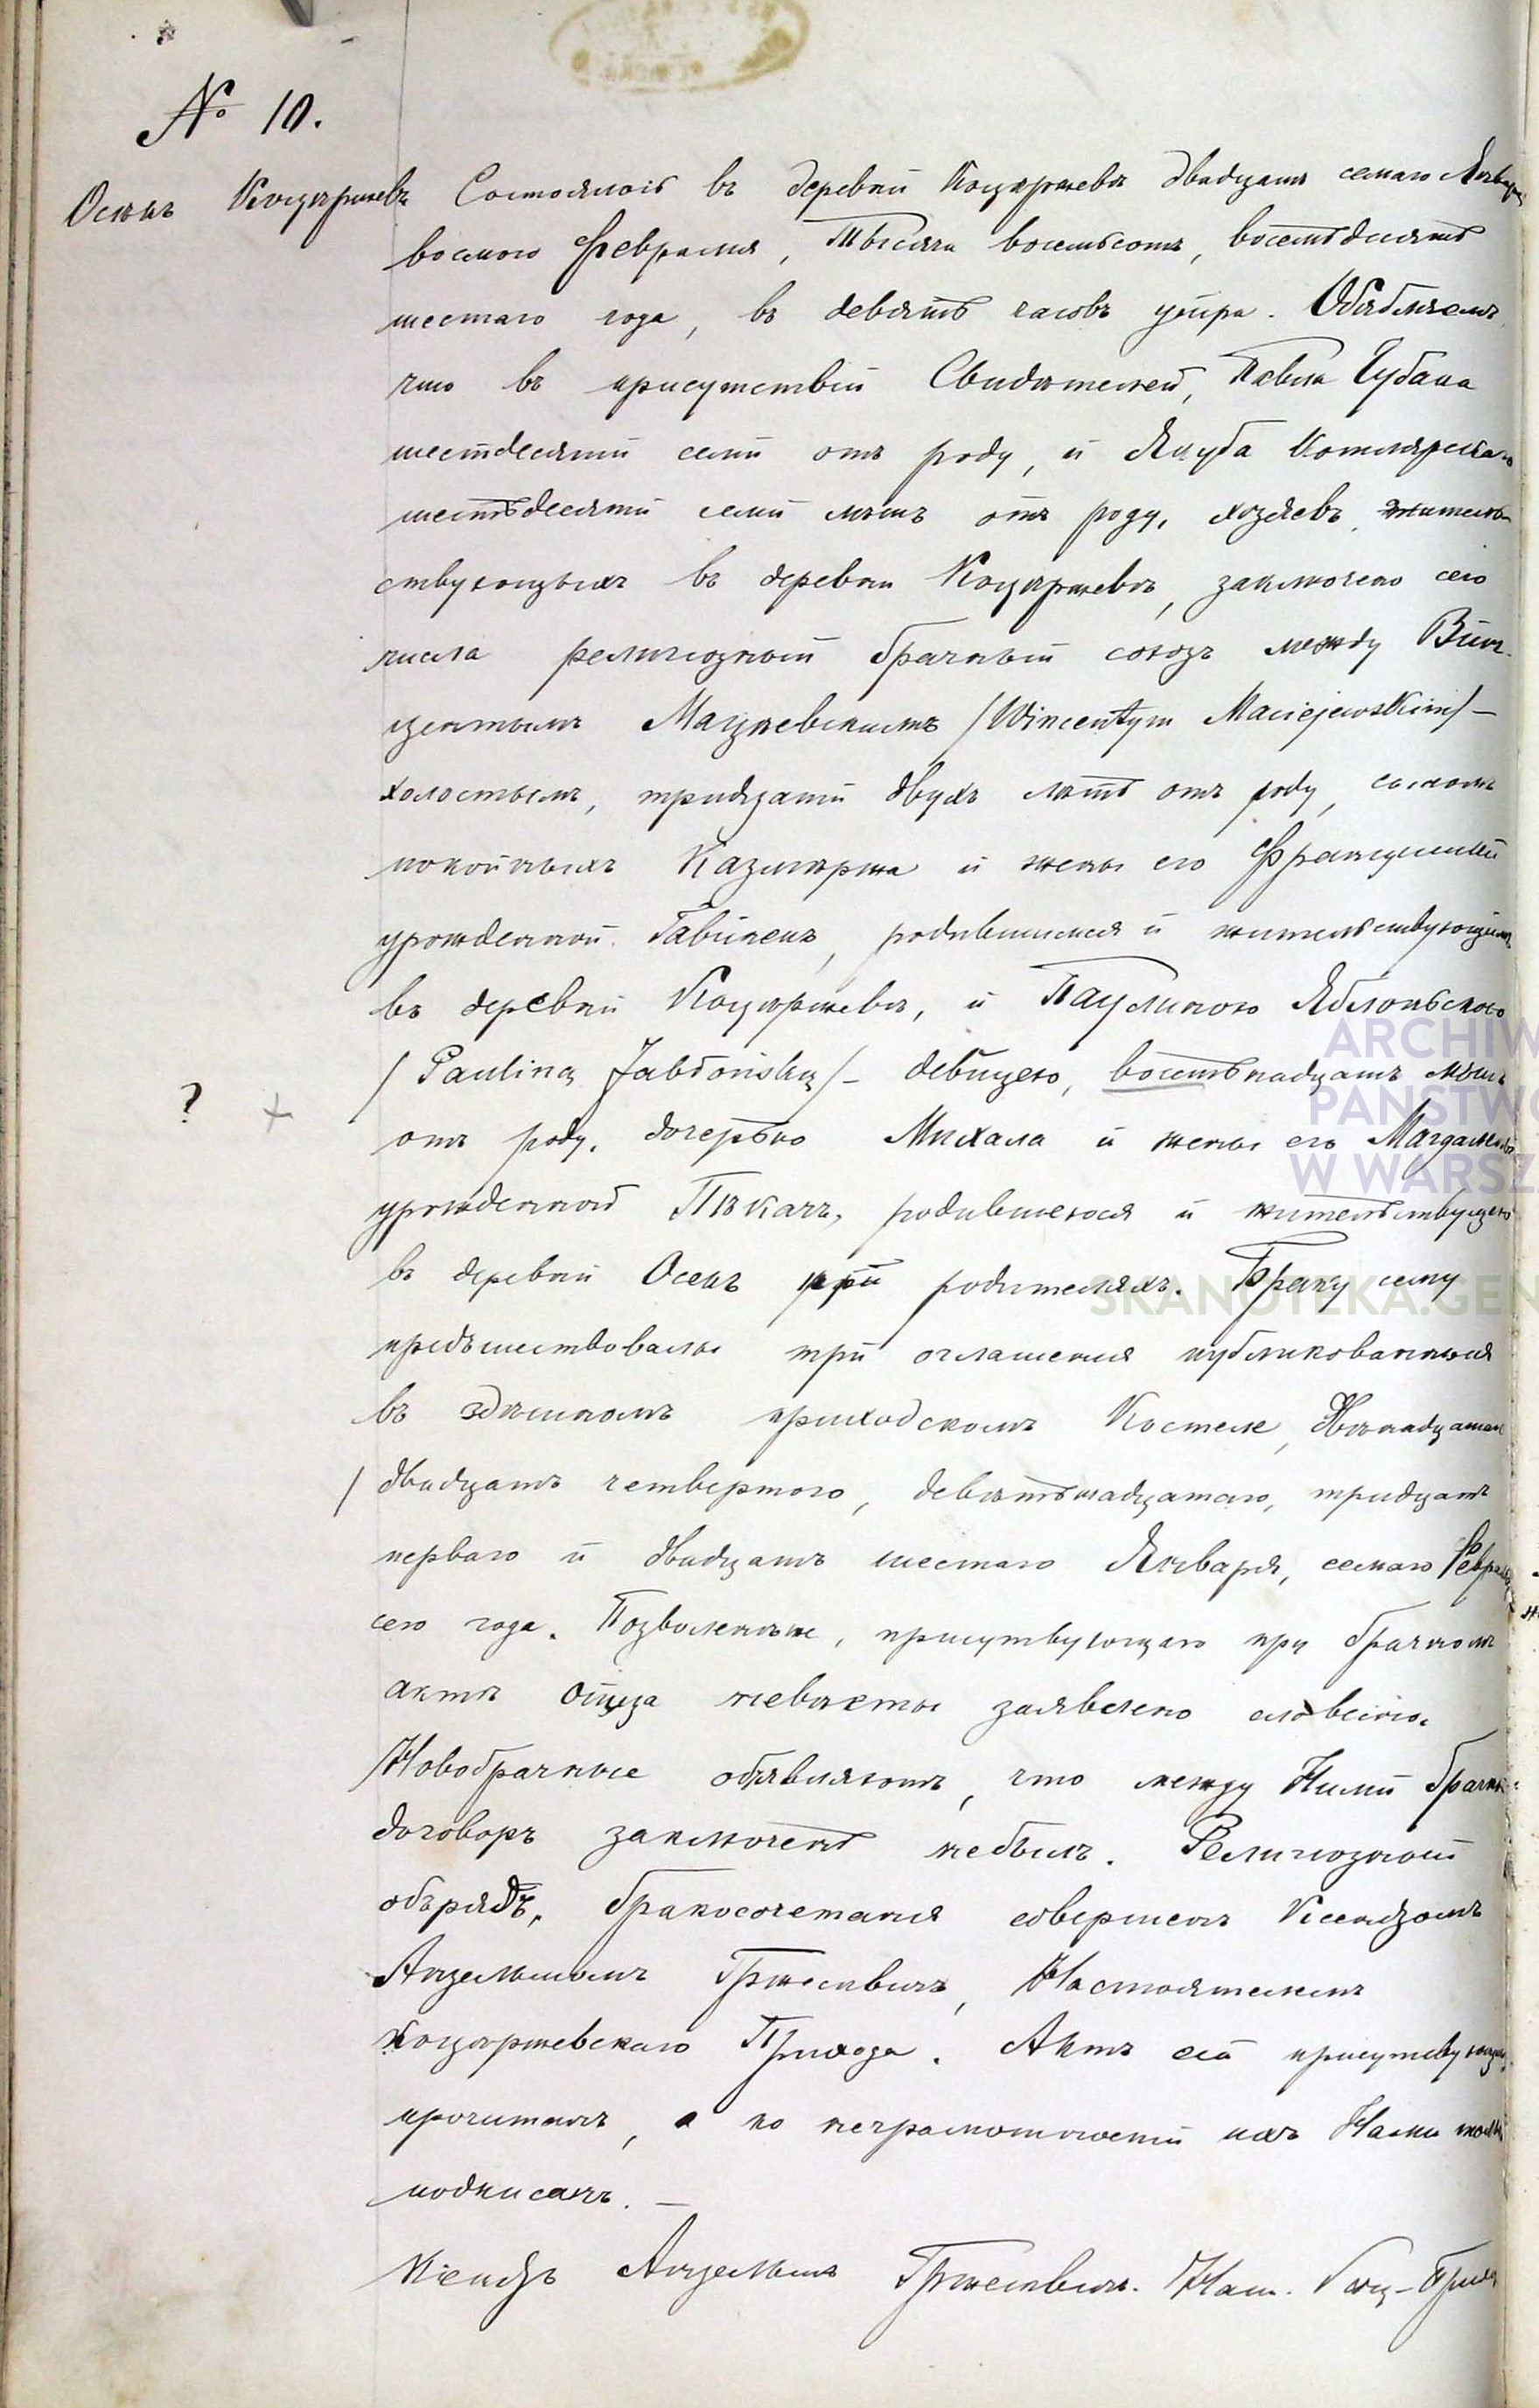 № 10.
Осѣкъ Коцѣржевъ
Состоялось въ деревни Коцѣржевѣ двадцать семаго Января
восмого Февраля, тысяча восемьсотъ, восемьдесятъ
шестаго года, въ девять часовъ утра. Объявляемъ
что въ присутствіи Свидѣтелей, Павла Чубака
шестдесяти семи отъ роду, и Якуба Котлярскаго
шестьдесяти семи лѣтъ отъ роду, хозяевъ, жительствующыхъ
въ деревни Коцѣржевѣ, заключено сего
числа религіозный брачный союзъ между Вин-
центымъ Мацѣевскимъ /Wincentym Maciejewskim/ —
холостымъ, тридцати двухъ лѣтъ отъ роду, сыномъ
покойныхъ Казимѣржа и жены его Францишки
урожденной Габинекъ, родившимся и жительствующимъ
въ деревни Коцѣржевѣ, и Паулиною Яблоньскою
/Pauliną Jabłońską/ — дѣвицею, восемьнадцать лѣтъ
отъ роду, дочерью Михала и жены его Магдалены
урожденной Пѣкачъ, родившеюся и жительствующею
въ деревни Осекъ при родителяхъ. Браку сему
предшествовалы три оглашенія публикованныя
въ здѣшномъ приходскомъ Костеле, Двѣнадцатаго
/двадцать четвертого, девятьнадцатаго, тридцать
перваго и двадцать шестаго Января, семаго Февраля
сего года. Позволеніе, присутвующаго при брачномъ
актѣ отца невѣсты заявлено словесно.
Новобрачные объявляютъ, что между Ними брачный
договоръ заключенъ небылъ. Религіозный
обърядъ, бракосочетанія совершенъ Ксендзомъ
Анзельмомъ Настоятелемъ
Коцѣржевскаго Прихода. Актъ сей присутвующимъ
прочитанъ, а по неграмотности ихъ Нами только
подписанъ. —
Ксендзъ Анзельмъ Наст. Коц- Прихода